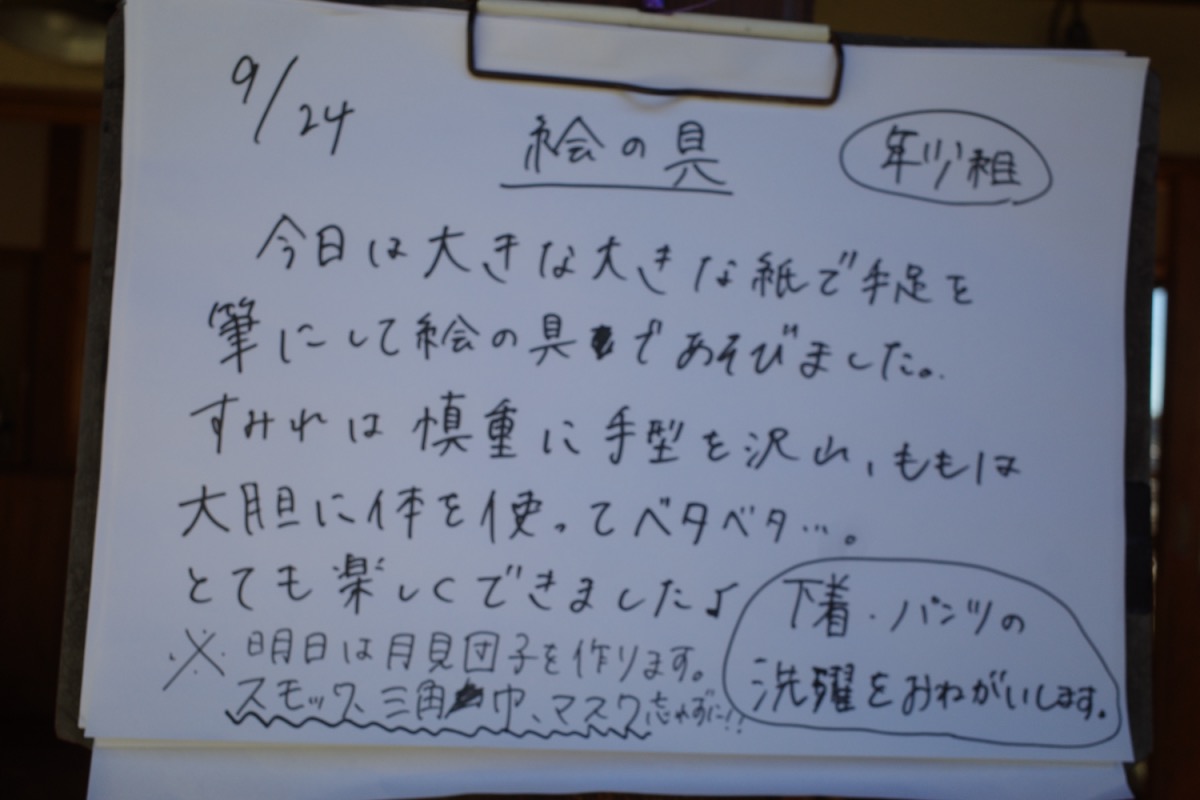 9/24
絵の具
年少組
今日は大きな大きな紙で手足を
筆にして絵の具であそびました。
すみれは慎重に手型を沢山、ももは
大胆に体を使ってベタベタ…。
とても楽しくできました♪
※明日は月見団子を作ります。
スモック、三角巾、マスク忘れずに!!
下着・パンツの
洗濯をおねがいします。